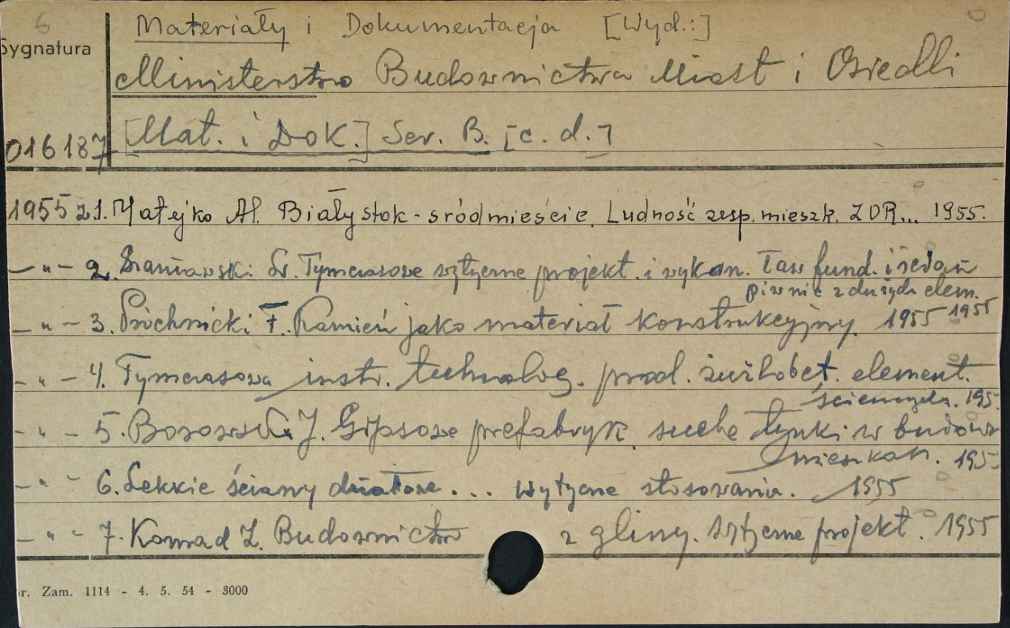 6 Materiały i Dokumentacja [Wyd.:]
Sygnatura
Ministerstwo Budownictwa Miast i Osiedli
016187 [Mat. i Dok.] Ser. B. [c. d.]
1955 z 1. Matejko Al. Białystok - śródmieście. Ludność zesp. mieszk. ZOR... 1955.
— " — 2. Tymczasowe wytyczne projekt. i wykon. ław fund. i ścian
piwnic z dużych elem. 1955
— " — 3. Próchnicki F. Kamień jako materiał konstrukcyjny. 1955
— " — 4. Tymczasowa instr. technolog. prod. żużlobet. element.
ściennych. 195
— " — 5. Borowski J. Gipsowe prefabryk. suche tynki w budown.
mieszkan. 195
— " — 6. Lekkie ściany działowe... wytyczne stosowania. 1955
— " — 7. Konrad Z. Budownictwo z gliny. wytyczne projekt. 1955
r. Zam. 1114 - 4. 5. 54 - 3000